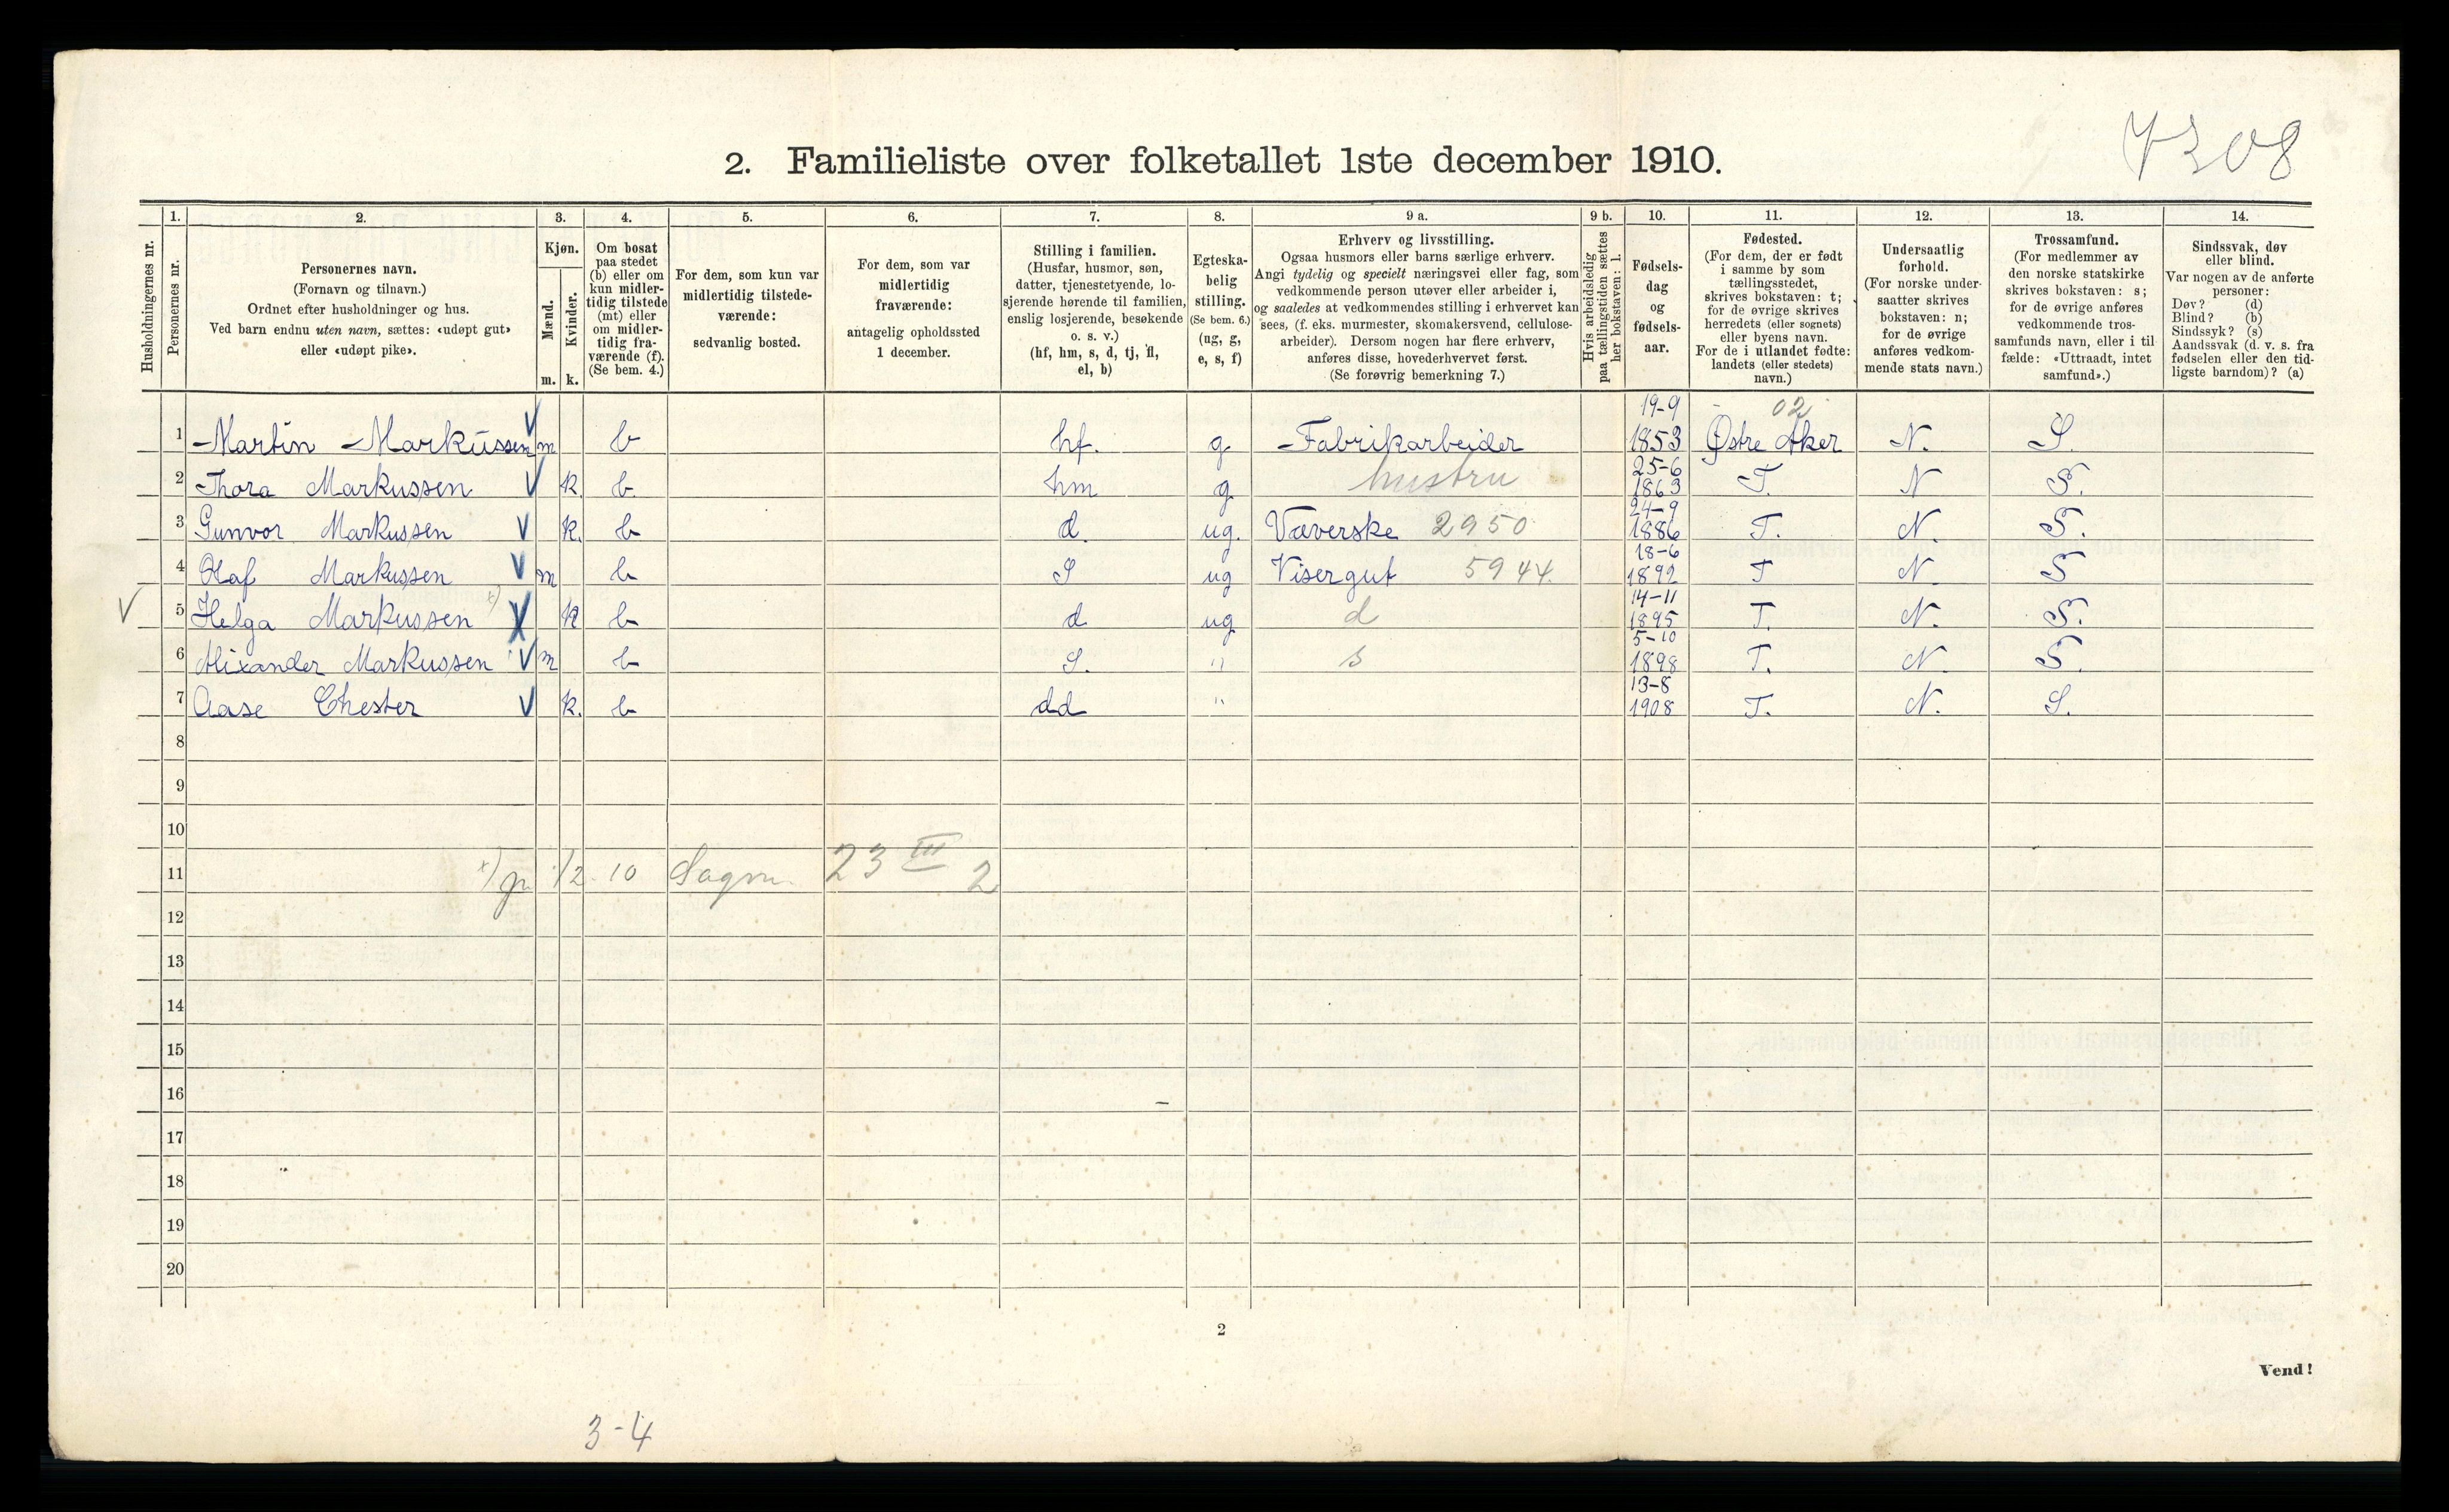 7308
2. Familieliste over folketallet 1ste december 1910.
Husholdningernes nr.
1. Personernes nr.
2. Personernes navn. (Fornavn og tilnavn.) Ordnet efter husholdninger og hus. Ved barn endnu uten navn, sættes: «udøpt gut» eller «udøpt pike».
3. Kjøn. Mænd. m. Kvinder. k.
4. Om bosat paa stedet (b) eller om kun midler-tidig tilstede (mt) eller om midler-tidig fra-værende (f). (Se bem. 4.)
5. For dem, som kun var midlertidig tilstede-værende: sedvanlig bosted.
6. For dem, som var midlertidig fraværende: antagelig opholdssted 1 december.
7. Stilling i familien. (Husfar, husmor, søn, datter, tjenestetyende, lo-sjerende hørende til familien, enslig losjerende, besøkende o. s. v.) (hf, hm, s, d, tj, fl, el, b)
8. Egteska-belig stilling. (Se bem. 6.) (ug, g, e, s, f)
9 a. Erhverv og livsstilling. Ogsaa husmors eller barns særlige erhverv. Angi tydelig og specielt næringsvei eller fag, som vedkommende person utøver eller arbeider i, og saaledes at vedkommendes stilling i erhvervet kan sees, (f. eks. murmester, skomakersvend, cellulose-arbeider). Dersom nogen har flere erhverv, anføres disse, hovederhvervet først. (Se forøvrig bemerkning 7.)
9 b. Hvis arbeidsledig paa tællingstiden sættes her bokstaven: l.
10. Fødsels-dag og fødsels-aar.
11. Fødested. (For dem, der er født i samme by som tællingsstedet, skrives bokstaven: t; for de øvrige skrives herredets (eller sognets) eller byens navn. For de i utlandet fødte: landets (eller stedets) navn.)
12. Undersaatlig forhold. (For norske under-saatter skrives bokstaven: n; for de øvrige anføres vedkom-mende stats navn.)
13. Trossamfund. (For medlemmer av den norske statskirke skrives bokstaven: s; for de øvrige anføres vedkommende tros-samfunds navn, eller i til fælde: «Uttraadt, intet samfund».)
14. Sindssvak, døv eller blind. Var nogen av de anførte personer: Døv? (d) Blind? (b) Sindssyk? (s) Aandssvak (d. v. s. fra fødselen eller den tid-ligste barndom)? (a)
1 Martin Markussen m b hf. g Fabrikarbeider 19-9 1853 02 Østre Aker N. S.
2 Thora Markussen k b. hm g hustru 25-6 1863 T. N S.
3 Gunvor Markussen k. b d. ug. Væverske 2950 24-9 1886 T. N. S.
4 Olaf Markussen m b S ug Visergut 5944. 18-6 1892 T N. S
5 Helga Markussen x) k b d ug d 14-11 1895 T. N. S.
6 Alixander Markussen m b S. " s 5-10 1898 T. N. S.
7 Aase Chester k. b dd " 13-8 1908 T. N. S.
8
9
10
11 x) 1/2 10 Sagvn. 23 III 2
12
13
14
15
16
17
18
19
20
2
Vend!
3-4